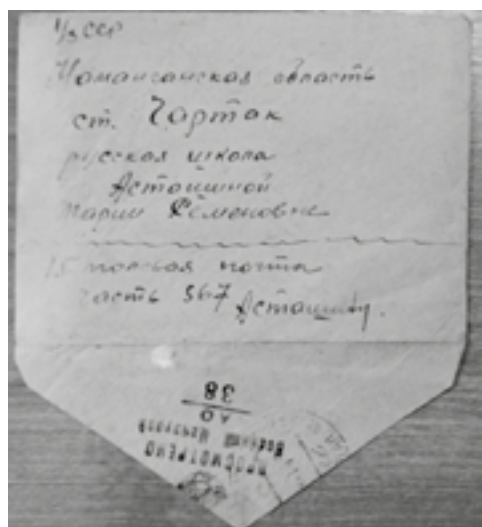 УзССР
Наманганская область
ст. Чартак
русская школа
Асташиной
Марии Семеновне
15 полевая почта
часть 567 Асташину.
38
АО
Военной Цензурой
ПРОСМОТРЕНО